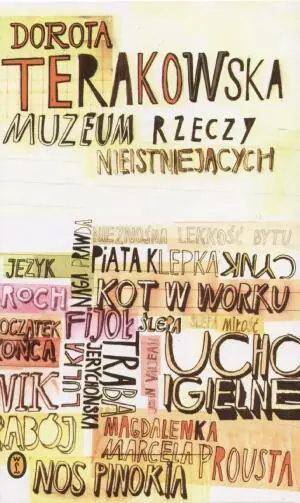 DOROTA
TERAKOWSKA
MUZEUM RZECZY
NIEISTNIEJĄCYCH
NIEZNOŚNA LEKKOŚĆ BYTU
NAGA PRAWDA
JĘZYK
PIĄTA KLEPKA
CYNIK
ROCH
KOT W WORKU
POCZĄTEK
KOŃCA
FIJOŁ
ŚLEPA
ŚLEPA MIŁOŚĆ
LULKA
TRĄBA
JERYCHOŃSKA
JEAN VALJEAN
UCHO
IGIELNE
WIK
RABÓJ
MAGDALENKA
MARCELA PROUSTA
NOS PINOKIA